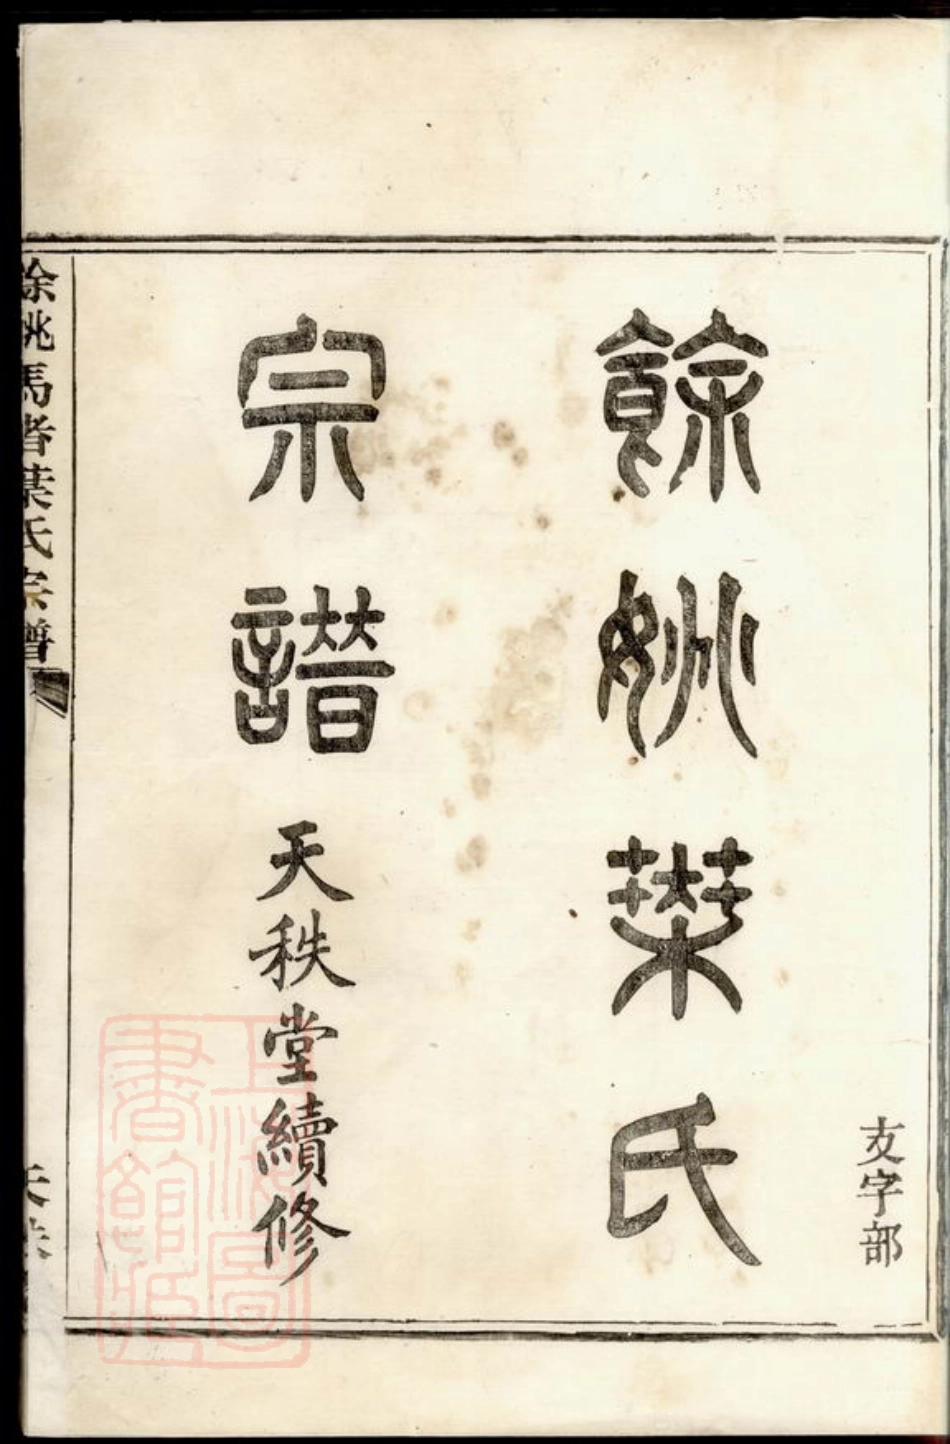 友字部
餘姚葉氏
宗譜
天秩堂續修
餘姚馬者葉氏宗譜
天秩
上海圖書館藏